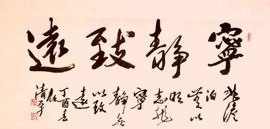 寧靜致遠
非澹
泊無以
明
志非
寧
靜無
以致
遠
丁酉春